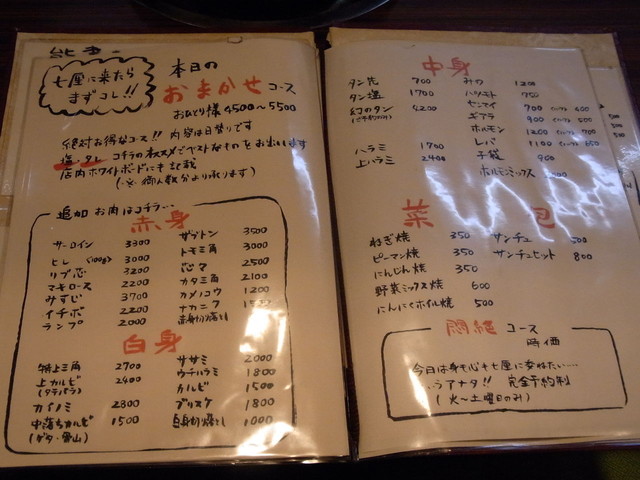 七厘に来たら
まずコレ!!
本日の
おまかせ コース
おひとり様 4500〜5500
絶対お得なコース!! 内容は日替りです
塩・タレ コチラのオススメでベストなものをお出します
店内ホワイトボードにも記載
(※御人数分より承ります)
追加 お肉はコチラ…
赤身
サーロイン 3300
ヒレ (100g) 3000
リブ芯 3200
マキロース 2200
みすじ 3700
イチボ 2200
ランプ 2000
ザブトン 3500
トモ三角 3000
芯マ 2500
カタ三角 2100
カメノコウ 1200
ナカニク
赤身切り落とし
白身
特上三角 2700
上カルビ 2400
(タテバラ)
カイノミ 2800
中落ちカルビ 1500
(ゲタ・
ササミ 2000
ウチハラミ 1800
カルビ 1500
ブリスケ 1800
白身切り落とし 1000
中身
タン先 700
タン塩 1700
幻のタン 4200
(ご予約のみ)
ハラミ 1700
上ハラミ 2400
ミノ 1200
ハツモト 750
センマイ 700 400
ギアラ 900 500
ホルモン 1200 700
レバ 1100 650
子袋 900
ホルモンミックス
菜
ねぎ焼 350
ピーマン焼 350
にんじん焼 350
野菜ミックス焼 600
にんにくホイル焼 500
包
サンチュ 500
サンチュセット 800
悶絶 コース
時価
今日は身も心も七厘に委ねたい……
アナタ!! 完全予約制
(火〜土曜日のみ)